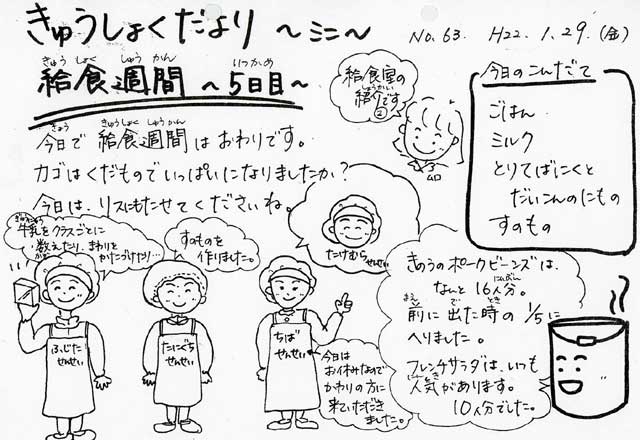 きゅうしょくだより 〜ミニ〜 No.63. H22.1.29.(金)
給食週間 〜5日目〜
きゅう しょく しゅう かん いつかめ
給食室の
紹介です
しょうかい
②
今日のこんだて
ごはん
ミルク
とりてばにくと
だいこんのにもの
すのもの
今日で 給食週間 は おわりです。
きょう きゅうしょくしゅうかん
カゴはくだものでいっぱいになりましたか?
今日は、リスにもたせてくださいね。
牛乳をクラスごとに
ぎゅうにゅう
数えたり、まわりを
かぞ
かたづけたり…
すのものを
作りました。
たけむらせんせい
ふじた
せんせい
たにぐち
せんせい
ちば
せんせい
今日は
お休みなので
かわりの方に
来ていただき
ました。
きのうのポークビーンズは、
なんと 16人分。
にんぶん
前に出た時の 1/5に
まえ で とき
へりました。
フレンチサラダは、いつも
人気があります。
にんき
10人分でした。